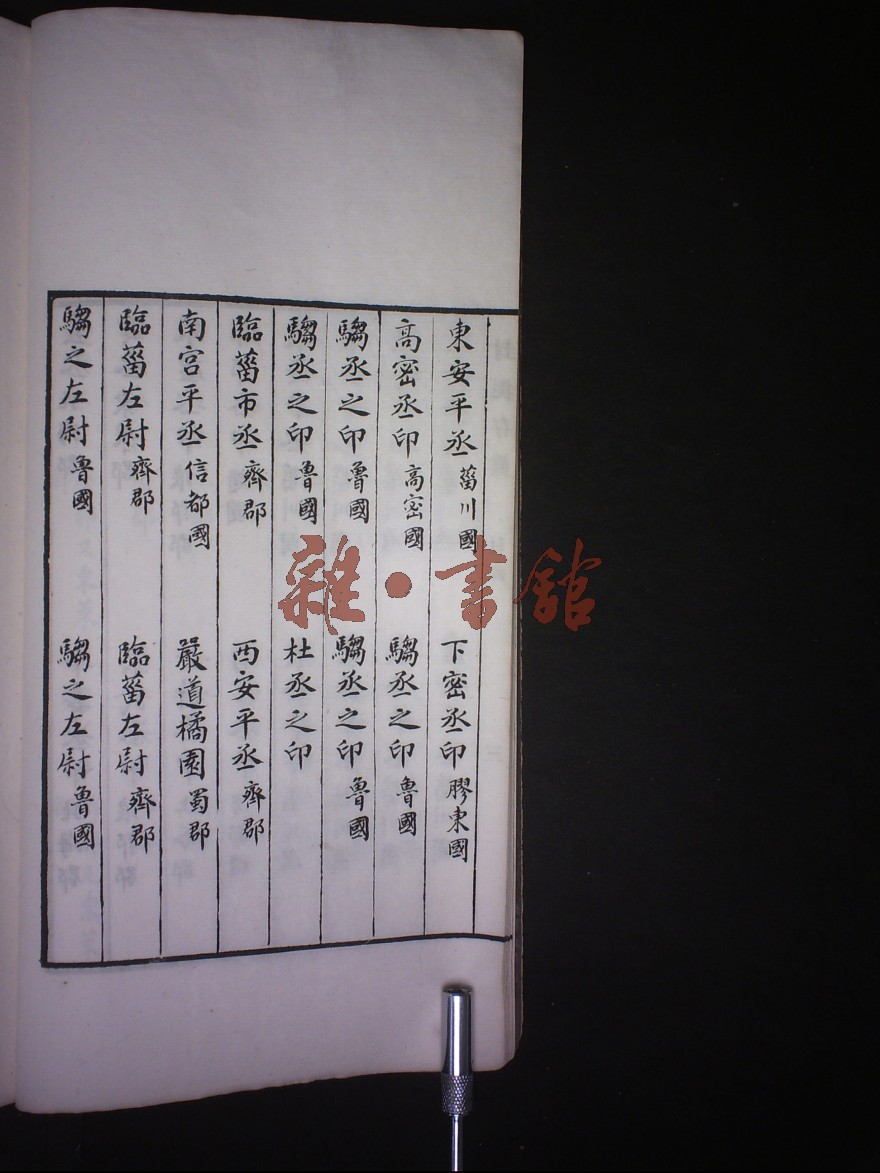 東安平丞 菑川國 下密丞印 膠東國
高密丞印 高密國 騶丞之印 魯國
騶丞之印 魯國 騶丞之印 魯國
騶丞之印 魯國 杜丞之印
臨菑市丞 齊郡 西安平丞 齊郡
南宮平丞 信都國 嚴道橘園 蜀郡
臨菑左尉 齊郡 臨菑左尉 齊郡
騶之左尉 魯國 騶之左尉 魯國
雜·書館